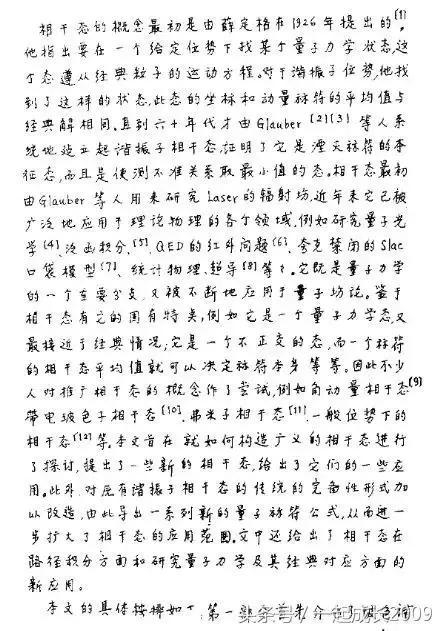 相干态的概念最初是由薛定格在1926年提出的,[1]
他指出要在一个给定位势下找某个量子力学状态,这
个态遵从经典粒子的运动方程。对于谐振子位势,他找
到了这样的状态,此态的坐标和动量标符的平均值与
经典解相同。直到六十年代才由Glauber [2][3] 等人系
统地建立起谐振子相干态,证明了它是湮灭标符的本
征态,而且是使测不准关系取最小值的态。相干态最初
由Glauber等人用来研究Laser的辐射场,近年来它已被
广泛地应用于理论物理的各个领域,例如研究量子光
学[4]、泛函积分、[5]、QED的红外问题[6]、夸克禁闭的Slac
口袋模型[7]、统计物理、超导[8]等。它既是量子力学
的一个重要分支,又被不断地应用于量子场论。鉴于
相干态有它的固有特点,例如它是一个量子力学态,又
最接近于经典情况;它是一个不正交的态,而一个标符
的相干态平均值就可以决定标符本身等等。因此不少
人对推广相干态的概念作了尝试,例如角动量相干态[9]
带电玻色子相干态[10]、弗米子相干态[11]、一般位势下的
相干态[12]等。本文旨在就如何构造广义的相干态进行
了探讨,提出了一些新的相干态,给出了它们的一些应
用。此外,对原有谐振子相干态的传统的完备性形式加
以改造,由此导出一系列新的量子标符公式,从而进一
步扩大了相干态的应用范围。文中还给出了相干态在
路径积分方面和研究量子力学及其经典对应方面的
新应用。
本文的具体安排如下,第一
头条号/一起成长2009